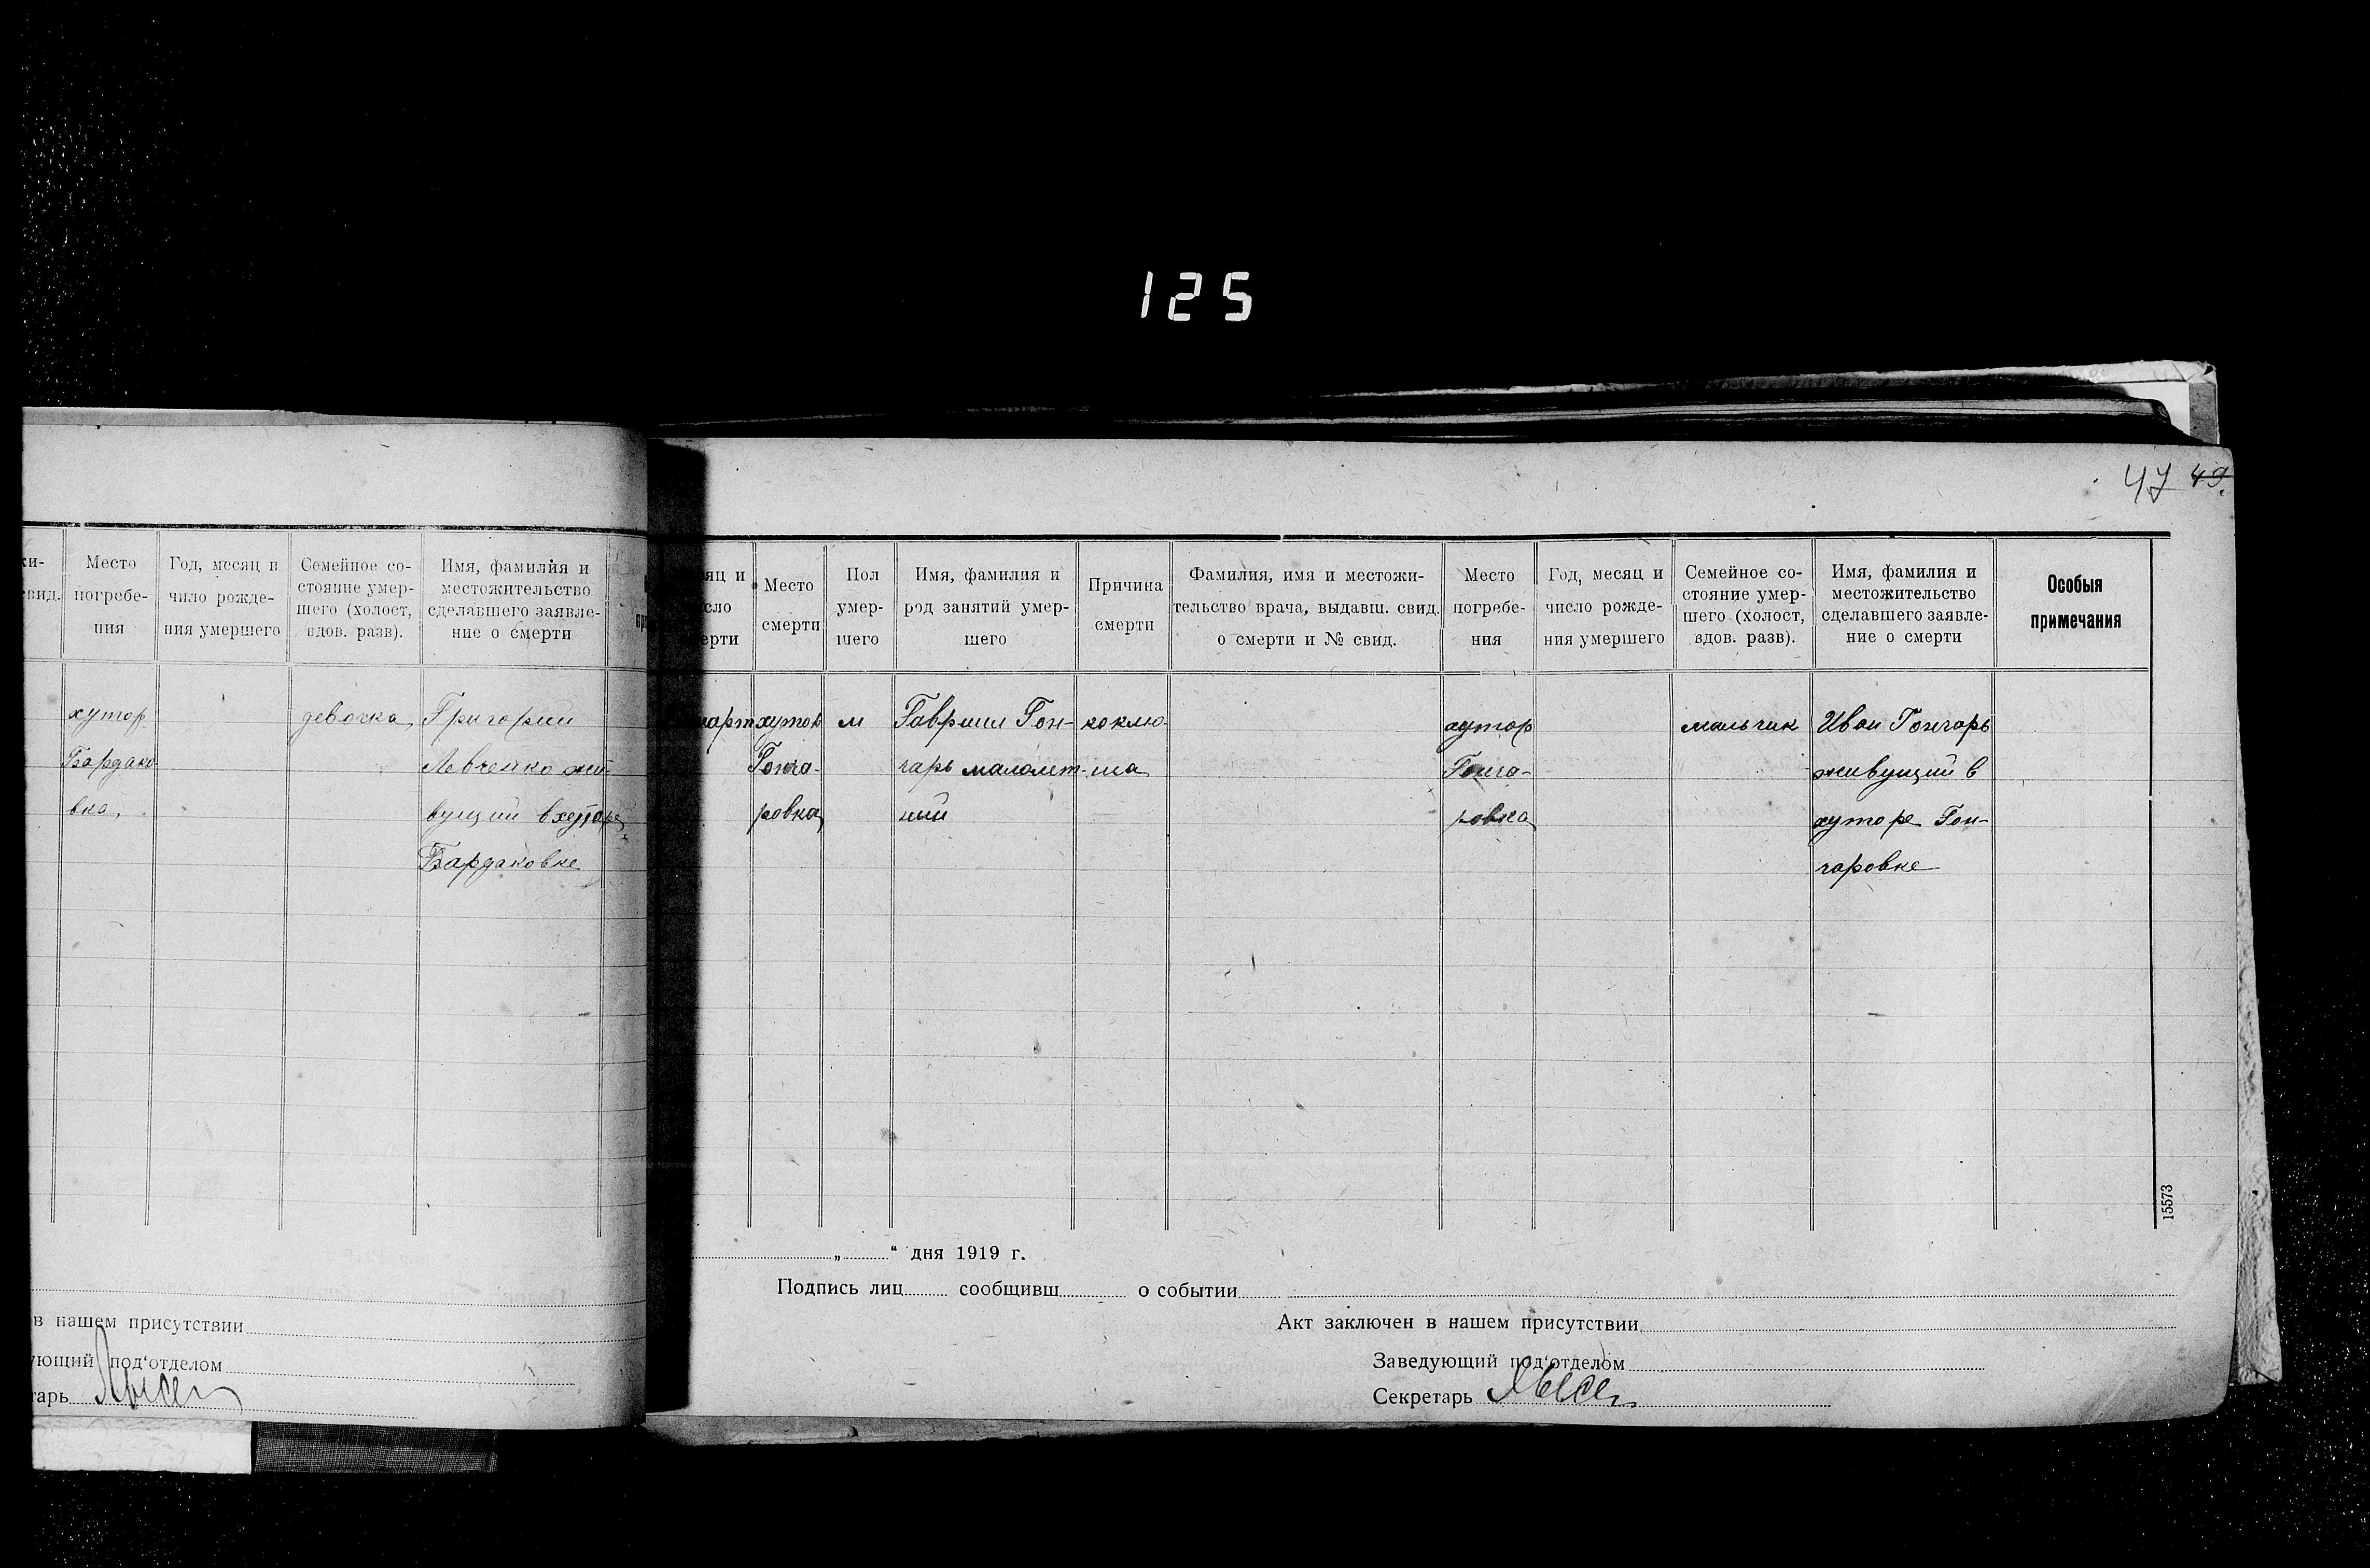 125
47 49.
ки-
свид.
Место
погребе-
ния
Год, месяц и
число рожде-
ния умершего
Семейное со-
стояние умер-
шего (холост,
вдов. разв).
Имя, фамилия и
местожительство
сделавшего заявле-
ние о смерти
хутор
Бардако
вка,
девочка
Григорий
Левченко жи-
вущий в хуторе
Бардаковке
в нашем присутствии
ующий под‘отделом
тарь
яц и
сло
ерти
Место
смерти
Пол
умер-
шего
Имя, фамилия и
род занятий умер-
шего
Причина
смерти
Фамилия, имя и местожи-
тельство врача, выдавш. свид.
о смерти и № свид.
Место
погребе-
ния
Год, месяц и
число рожде-
ния умершего
Семейное со-
стояние умер-
шего (холост,
вдов. разв).
Имя, фамилия и
местожительство
сделавшего заявле-
ние о смерти
Особыя
примечания
март
хутор
Гонча-
ровка
м
Гавриил Гон-
чарь малолет-
ний
коклю-
ша
хутор
Гонча-
ровка
мальчик
Иван Гончарь
живущий в
хуторе Гон-
чаровке
15573
„ “ дня 1919 г.
Подпись лиц сообщивш о событии
Акт заключен в нашем присутствии
Заведующий под‘отделом
Секретарь